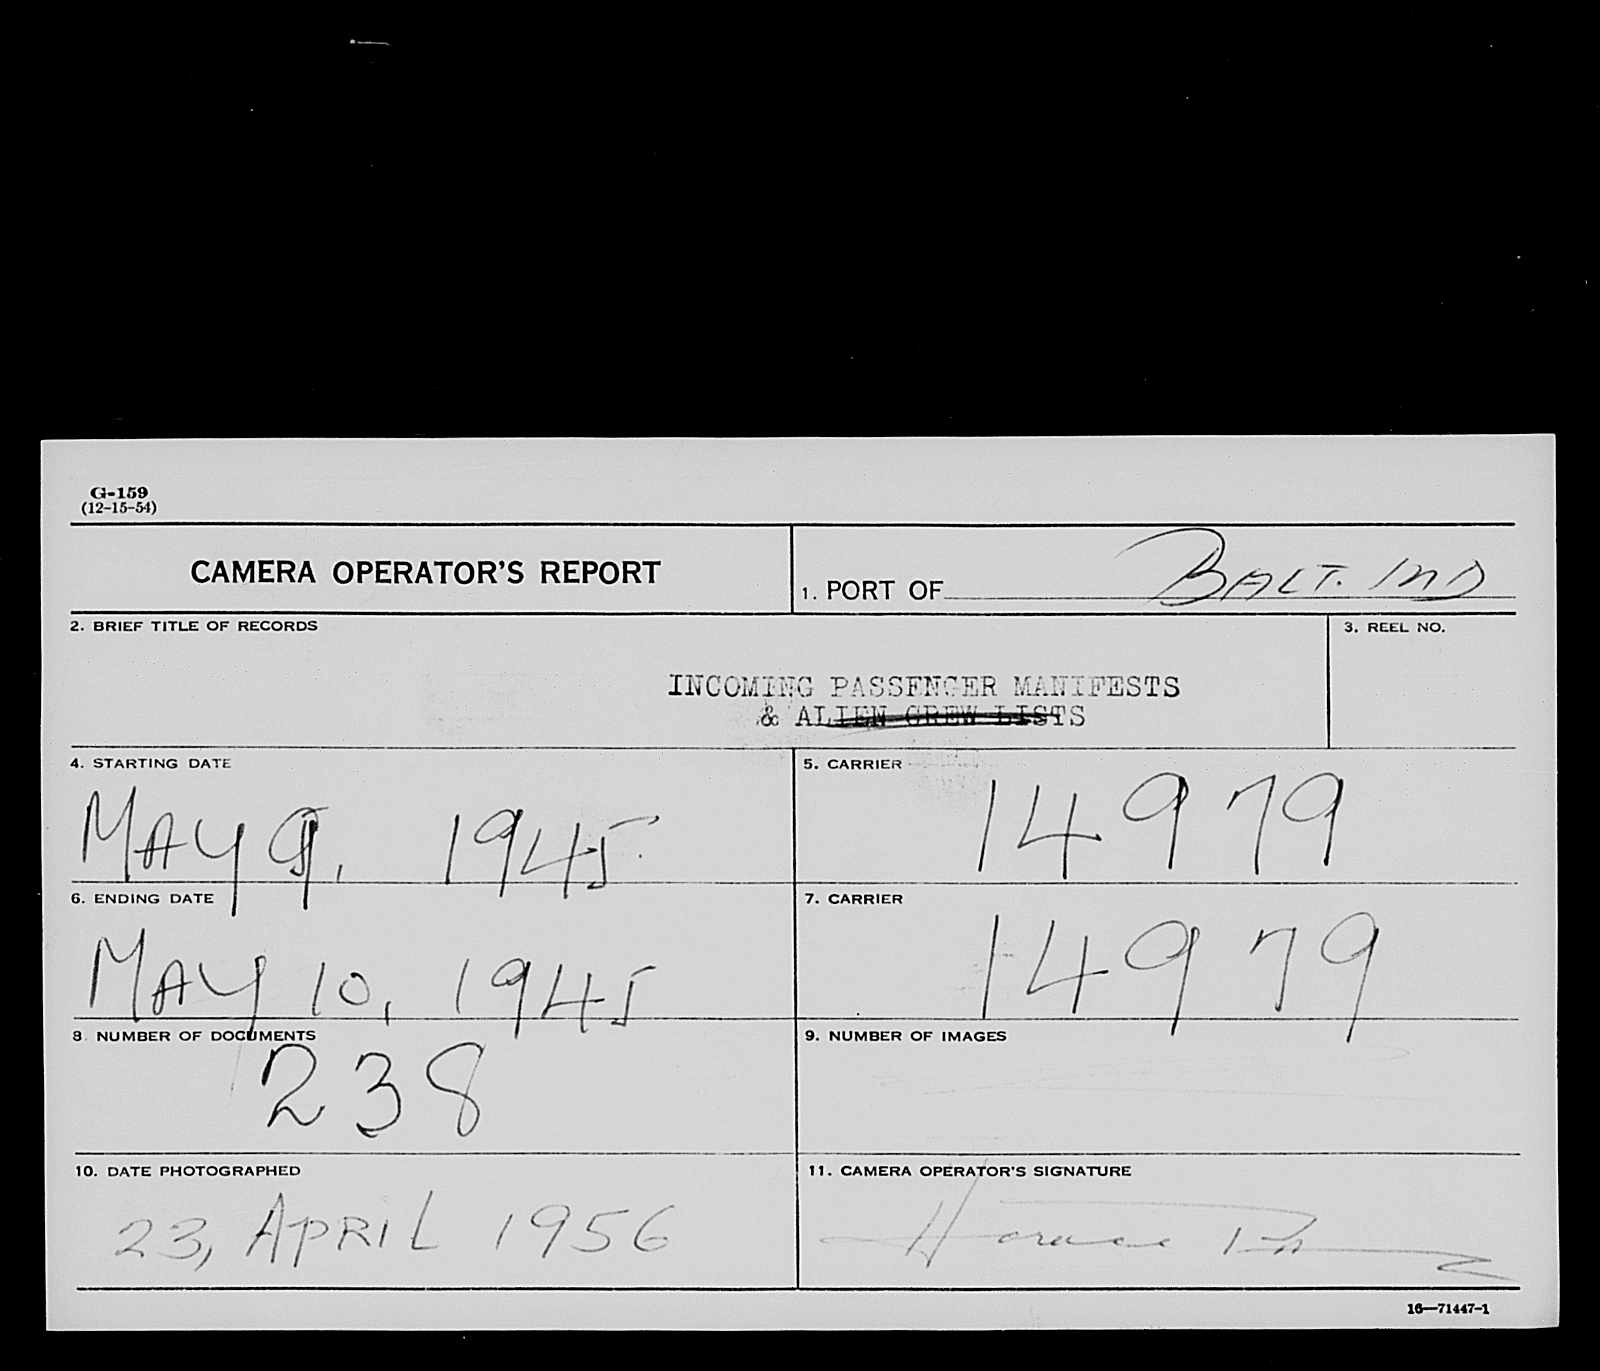 G-159
(12-15-54)
CAMERA OPERATOR'S REPORT
1. PORT OF BALT. MD
2. BRIEF TITLE OF RECORDS
3. REEL NO.
INCOMING PASSENGER MANIFESTS
& ALIEN CREW LISTS
4. STARTING DATE
5. CARRIER
MAY 9, 1945
14979
6. ENDING DATE
7. CARRIER
MAY 10, 1945
14979
8. NUMBER OF DOCUMENTS
9. NUMBER OF IMAGES
238
10. DATE PHOTOGRAPHED
11. CAMERA OPERATOR'S SIGNATURE
23, APRIL 1956
Horace
16—71447-1